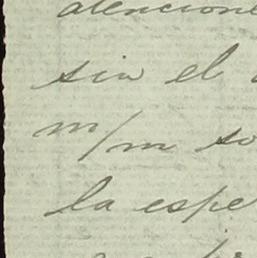 atencione
sin el
m/m so
la espe